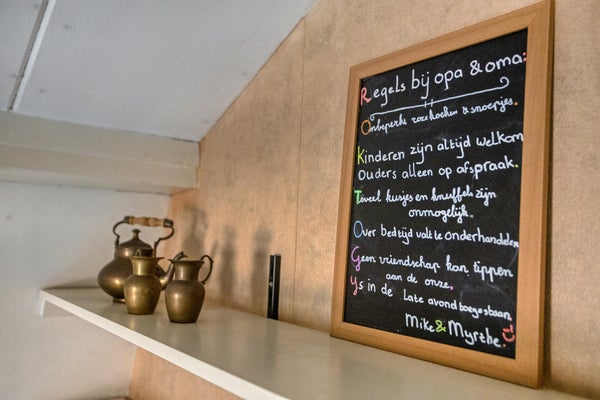 Regels bij opa & oma:
Onbeperkt roze koeken & snoepjes.
Kinderen zijn altijd welkom
Ouders alleen op afspraak.
Teveel kusjes en knuffels zijn
onmogelijk.
Over bedtijd valt te onderhandelen
Geen vriendschap kan tippen
aan de onze.
Ys in de late avond toegestaan.
Mike & Myrthe.